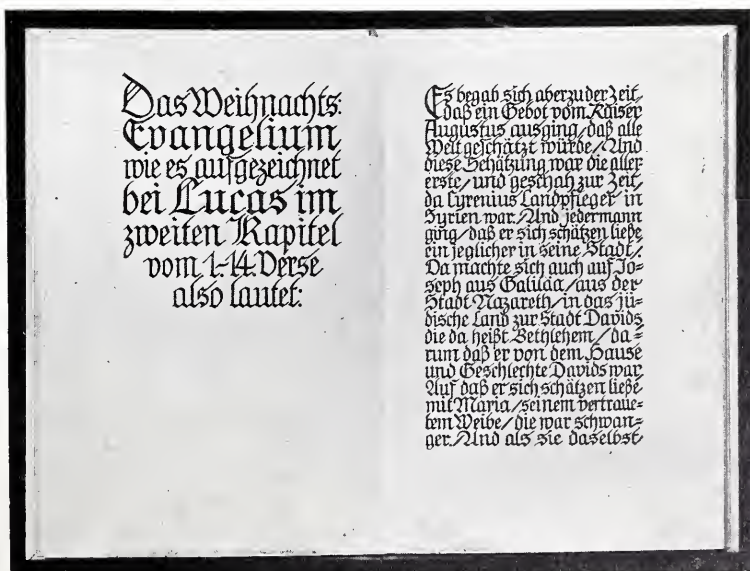 Das Weihnachts:
Evangelium
wie es aufgezeichnet
bei Lucas im
zweiten Kapitel
vom 1.-14. Verse
also lautet:
Es begab sich aber zu der Zeit,
daß ein Gebot vom Kaiser
Augustus ausging/daß alle
Welt geschätzt würde/Und
diese Schätzung war die aller
erste/und geschah zur Zeit,
da Cyrenius Landpfleger in
Syrien war. And jedermann
ging/daß er sich schätzen ließe
ein jeglicher in seine Stadt/.
Da machte sich auch auf Jo-
seph aus Galiläa/aus der
Stadt Nazareth/in das jü-
dische Land zur Stadt Davids
die da heißt Bethlehem/da-
rum daß er von dem Hause
und Geschlechte Davids war
Auf daß er sich schätzen ließe
mit Maria/seinem vertraue=
tem Weibe/die war schwan=
ger. Und als sie daselbst